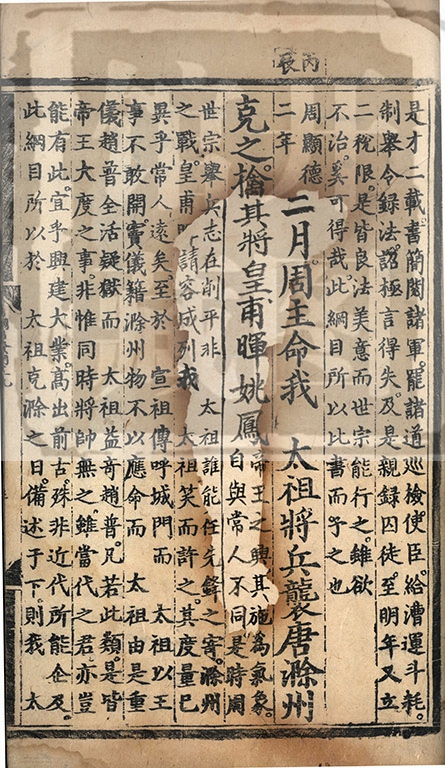 丙辰
是才二載書簡閱諸軍罷諸道巡檢使臣給漕運斗耗
制舉令録法詔極言得失及是親録囚徒至明年又立
二稅限是皆良法美意而世宗能行之雖欲
不治奚可得哉此綱目所以比書而予之也
周顯德
二年
二月周主命我 太祖將兵襲唐滁州
克之擒其將皇甫暉姚鳳
帝王之興其施為氣象
自與常人不同是時周
世宗舉兵志在削平非 太祖誰能任先鋒之寄滁州
之戰皇甫暉請容成列我 太祖笑而許之其度量已
異乎常人遠矣至於 宣祖傳呼城門而 太祖以王
事不敢開竇儀籍滁州物不以應命而 太祖由是重
儀趙普全活疑獄而 太祖益奇趙普凡若此類是皆
帝王大度之事非惟同時將帥無之雖當代之君亦豈
能有此宜乎興建大業高出前古殊非近代所能企及
此綱目所以於 太祖克滁之日備述于下則我 太